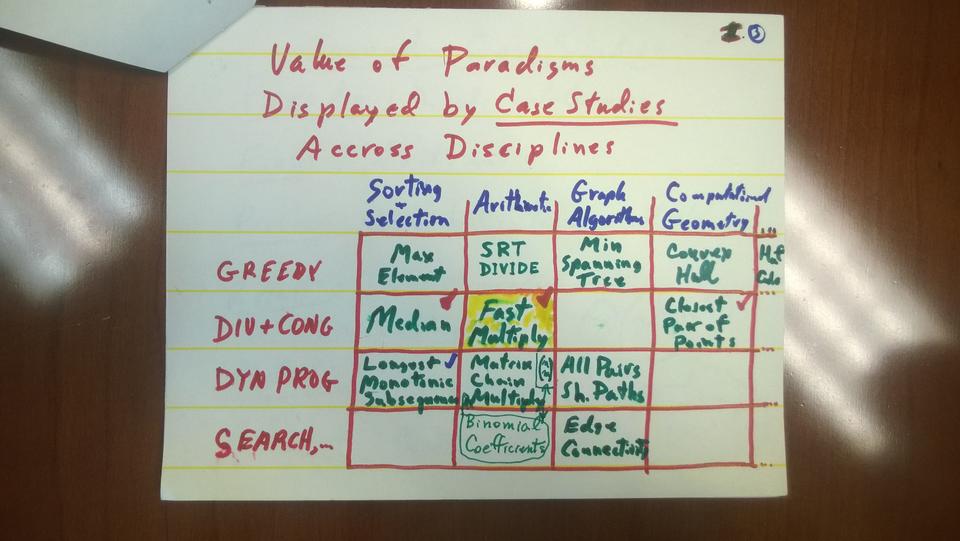 Value of Paradigms
Displayed by Case Studies
Accross Disciplines
Sorting + Selection
Arithmetic
Graph Algorithms
Computational Geometry
...
GREEDY
Max Element
SRT DIVIDE
Min Spanning Tree
Convex Hull
...
DIV + CONQ
Median
Fast Multiply
Closest Pair of Points
...
DYN PROG
Longest Monotonic Subsequence
Matrix Chain Multiply
All Pairs Sh. Paths
...
SEARCH,...
Binomial Coefficients
Edge Connectivity
...